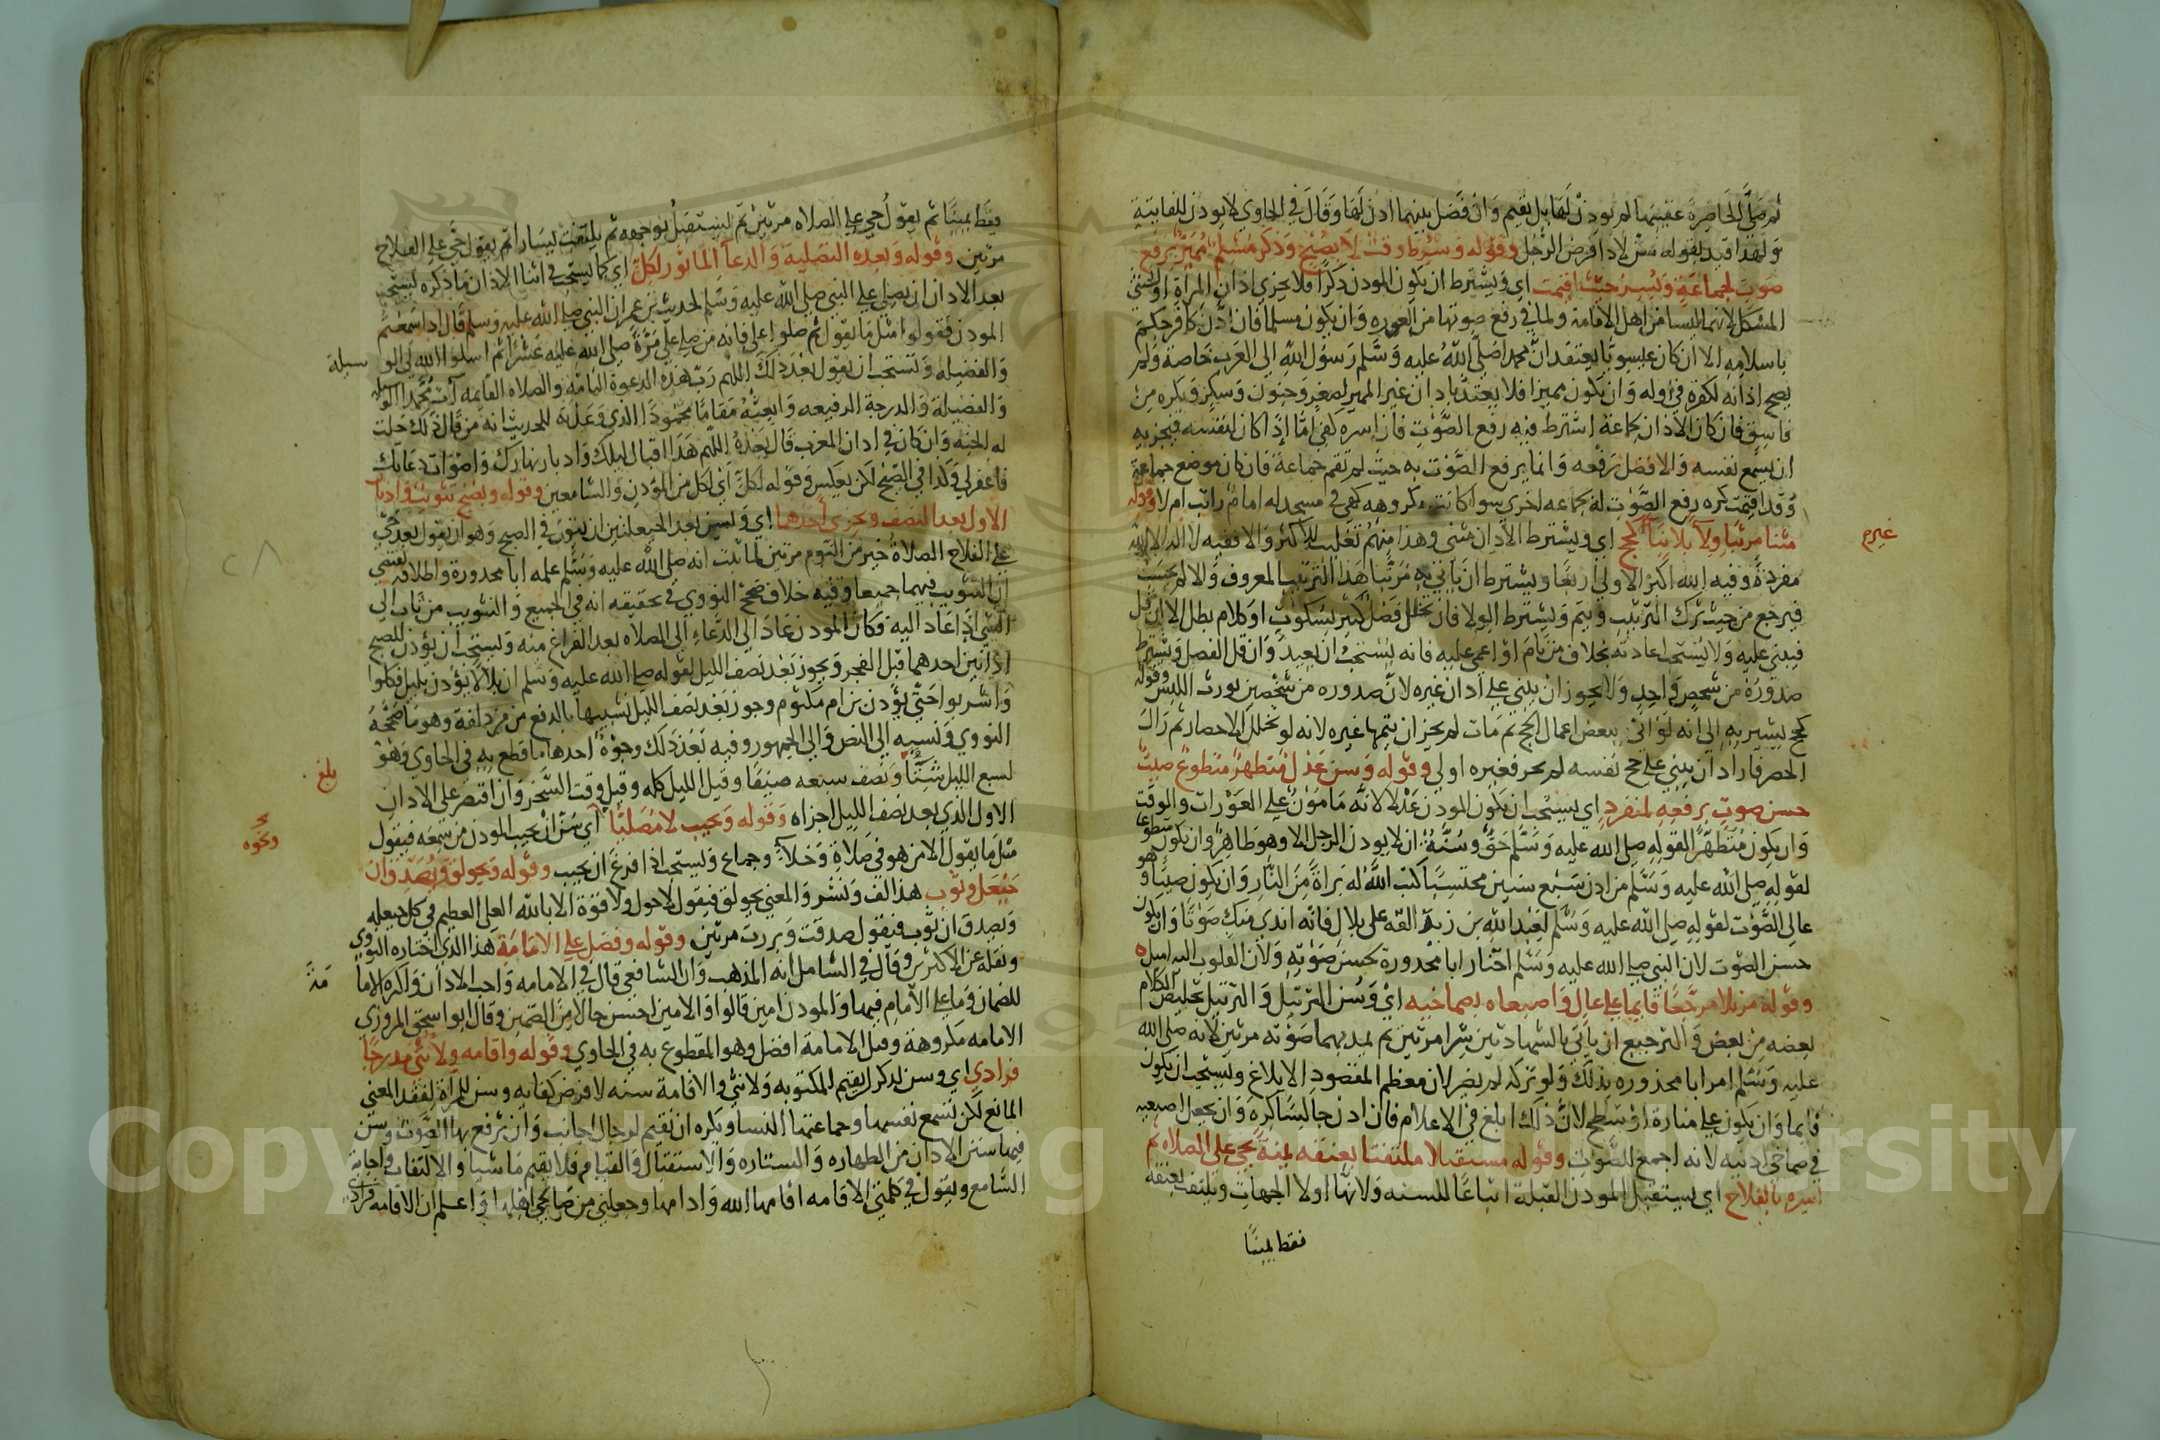 ثم صلى الحاضرة عقيبها لم يوذن لها بل يقيم وان فصل بينهما اذن لها وقال في الحاوي لا يوذن للفايتة
ولهذا قيد بقوله سن لاداء فرض الرجل وقوله وشرط وقت لا بصبح وذكر مسلم مميز برفع
صوت لجماعة وبسر حيث اقيمت اي ويشترط ان يكون الموذن ذكرا فلا يجزي اذان المراة او الخنثى
المشكل لانهما ليسا من اهل الامامة ولما في رفع صوتها من العورة وان يكون مسلما فان اذن كافر حكم
باسلامه الا ان كان عيسويا يعتقد ان محمدا صلى الله عليه وسلم رسول الله الى العرب خاصة ولم
يصح اذانه لكفره في اوله وان يكون مميزا فلا يعتد باذان غير المميز لصغر وجنون وسكر ويكره من
فاسق فان كان الاذان لجماعة اشترط فيه رفع الصوت فان اسره كفى اما اذا كان لنفسه فيجزيه
ان يسمع نفسه والافضل رفعه وانما يرفع الصوت به حيث لم تقم جماعة فان كان موضع جماعة
وقد اقيمت كره رفع الصوت له لجماعة اخرى سوا كانت مكروهة كهي في مسجد له امام راتب ام لا وقوله
مثنا مرتبا ولا بلا بنا كحج اي ويشترط الاذان مثنى وهذا منهم تغليب للاكثر والا ففيه لا اله الا الله
غيرم
مفردة وفيه الله اكبر الاولى اربعا ويشترط ان ياتي به مرتبا هذا الترتيب المعروف والا لم يحسب
فيرجع من حيث ترك الترتيب ويتم ويشترط الولا فان تخلل فصل كبير بسكوت او كلام بطل الا ان قل
فيبنى عليه ولا يستحب اعادته بخلاف من نام او اغمي عليه فانه يستحب ان يعيد وان قل الفصل ويشترط
صدوره من شخص واحد ولا يجوز ان يبني على اذان غيره لان صدوره من شخصين يورث اللبس وقوله
كحج يشير به الى انه لو اتى ببعض اعمال الحج ثم مات لم يجز ان يتمها غيره لانه لو تخلل الاحصار ثم زال
الحصر فاراد ان يبني على حج نفسه لم يجز فغيره اولى وقوله وسن عدل متطهر متطوع صيت
حسن صوت برفعه لمنفرد اي يستحب ان يكون الموذن عدلا لانه مامون على العورات والوقت
وان يكون متطهرا لقوله صلى الله عليه وسلم حق وسنة ان لا يوذن الرجل الا وهو طاهر وان يكون متطوعا
لقوله صلى الله عليه وسلم من اذن سبع سنين محتسبا كتب الله له براة من النار وان يكون صيتا وهو
عالي الصوت لقوله صلى الله عليه وسلم لعبد الله بن زيد القه على بلال فانه اندى منك صوتا وان يكون
حسن الصوت لان النبي صلى الله عليه وسلم اختار ابا محذورة لحسن صوته ولان القلوب اليه اميل
وقوله مرتلا مرجعا قايما على عال واصبعاه بصماخيه اي وسن الترتيل والترتيل تخليص الكلام
بعضه من بعض والترجيع ان ياتي بالشهادتين سرا مرتين ثم يمد بهما صوته مرتين لانه صلى الله
عليه وسلم امر ابا محذوره بذلك ولو تركه لم يضر لان معظم المقصود الابلاغ ويستحب ان يكون
قايما وان يكون على منارة او سطح لان ذلك ابلغ في الاعلام فان اذن جالسا كره وان يجعل اصبعيه
في صماخي اذنيه لانه اجمع للصوت وقوله مستقبلا ملتفتا بعنقه يمنة بحي على الصلاه ثم
يسره بالفلاح اي يستقبل الموذن القبلة اتباعا للسنه ولانها اولا الجهات ويلتفت بعنقه
فقط يمينا
فقط يمينا ثم يقول حي على الصلاه مرتين ثم ليستقبل بوجهه ثم يلتفت يسارا ثم يقول حي على الفلاح
مرتين وقوله وبعده التصلية والدعا الماثور لكل اي كما يستحب في اثنا الاذان ما ذكره يستحب
بعد الاذان ان يصلي على النبي صلى الله عليه وسلم لحديث بن عمر ان النبي صلى الله عليه وسلم قال اذا سمعتم
الموذن فقولوا مثل ما يقول ثم صلوا علي فانه من صلى علي مرة صلى الله عليه عشرا ثم اسلوا الله لي الوسيلة
والفضيلة ويستحب ان يقول بعد ذلك اللهم رب هذه الدعوة التامة والصلاه القايمه آت محمدا الوسيلة
والفضيلة والدرجة الرفيعه وابعثه مقاما محمودا الذي وعدته للحديث انه من قال ذلك حلت
له الجنه وان كان في اذان المغرب قال بعده اللهم هذا اقبال ليلك وادبار نهارك واصوات دعاتك
فاغفر لي وكذا في الصبح لكن بعكس وقوله لكل اي لكل من الموذن والسامعين وقوله وبصبح تثويب واذنا
الاول بعد النصف ويجزي احدهما اي ويسن بعد الحيعلتين ان يثوب في الصبح وهو ان يقول بعد حي
على الفلاح الصلاة خير من النوم مرتين لما ثبت انه صلى الله عليه وسلم علمه ابا محذورة واطلاقه يقتضي
ان التثويب فيهما جميعا وفيه خلاف صحح النووي في تحقيقه انه في الجميع والتثويب من ثاب الى
الشي اذا عاد اليه فكان الموذن عاد الى الدعاء الى الصلاه بعد الفراغ منه ويستحب ان يؤذن للصبح
اذانين احدهما قبل الفجر ويجوز بعد نصف الليل لقوله صلى الله عليه وسلم ان بلالا يؤذن بليل فكلوا
واشربوا حتى يؤذن بن ام مكتوم وجوز بعد نصف الليل تشبيها بالدفع من مزدلفة وهو ما صححه
النووي ونسبه الى النص والى الجمهور وفيه بعد ذلك وجوه احدها ما قطع به في الحاوي وهو
بلغ
لسبع الليل شتاء ونصف سبعه صيفا وقيل الليل كله وقيل وقت السحر وان اقتصر على الاذان
الاول الذي بعد نصف الليل اجزاه وقوله ويجيب لا مصليا اي سن ان يجيب الموذن من سمعه فيقول
ونحوه
مثل ما يقول الا من هو في صلاة وخلاء وجماع ويستحب اذا فرغ ان يجيب وقوله ويحولق ويصدق ان
حيعل وثوب هذا لف ونشر والمعنى يحولق فيقول لا حول ولا قوة الا بالله العلي العظيم في كل حيعلة
ويصدق ان ثوب فيقول صدقت وبررت مرتين وقوله وفضل على الامامة هذا الذي اختاره النووي
ونقله عن الاكثرين وقال في الشامل انه المذهب وان الشافعي قال في الامامه واحب الاذان واكره الاما
مة
للضمان وما على الامام فيها والموذن امين قالوا والامين احسن حالا من الضمين وقال ابو اسحق المروزي
الامامه مكروهة وقيل الامامة افضل وهو المقطوع به في الحاوي وقوله واقامه ولانثى مدرجا
فرادى اي وسن لذكر ان يقيم للمكتوبه ولانثى والاقامة سنه لا فرض كفايه وسن للمراة لفقد المعنى
المانع لكن تسمع نفسها وجماعتها النسا ويكره ان تقيم لرجال اجانب وان ترفع بها الصوت وسن
فيها سنن الاذان من الطهاره والستاره والاستقبال والقيام فلا يقيم ماشيا والالتفات في اجابة
السامع ويقول في كلمتي الاقامه اقامها الله وادامها وجعلني من صالحي اهلها واعلم ان الاقامه فرادى